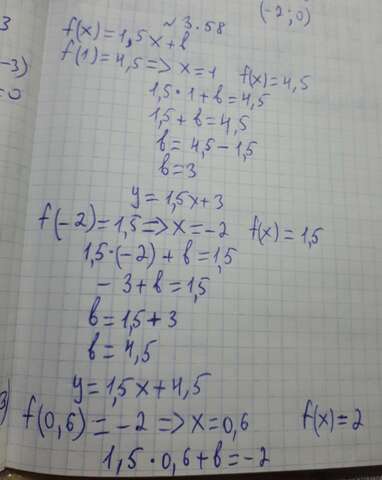 3
(-2; 0)
~ 3.58
f(x)=1,5x+b
-3)
=0
f(1)=4,5=>x=1 f(x)=4,5
1,5·1+b=4,5
1,5+b=4,5
b=4,5-1,5
b=3
y=1,5x+3
f(-2)=1,5=>x=-2 f(x)=1,5
1,5·(-2)+b=1,5
-3+b=1,5
b=1,5+3
b=4,5
y=1,5x+4,5
3) f(0,6)=-2=>x=0,6 f(x)=2
1,5·0,6+b=-2